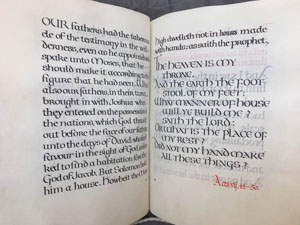 OUR fathers had the taberna-
cle of the testimony in the wil-
derness, even as he appointed who
spake unto Moses, that he
should make it according to the
figure that he had seen. Which
also our fathers, in their turn,
brought in with Joshua when
they entered on the possession of
the nations, which God thrust
out before the face of our fathers,
unto the days of David, who found
favour in the sight of God and as
ked to find a habitation for the
God of Jacob. But Solomon built
him a house. Howbeit the Most
High dwelleth not in houses made
with hands: as saith the prophet,
THE HEAVEN IS MY
THRONE,
AND THE EARTH THE FOOT-
STOOL OF MY FEET:
WHAT MANNER OF HOUSE
WILL YE BUILD ME?
SAITH THE LORD:
OR WHAT IS THE PLACE
OF MY REST?
DID NOT MY HAND MAKE
ALL THESE THINGS?